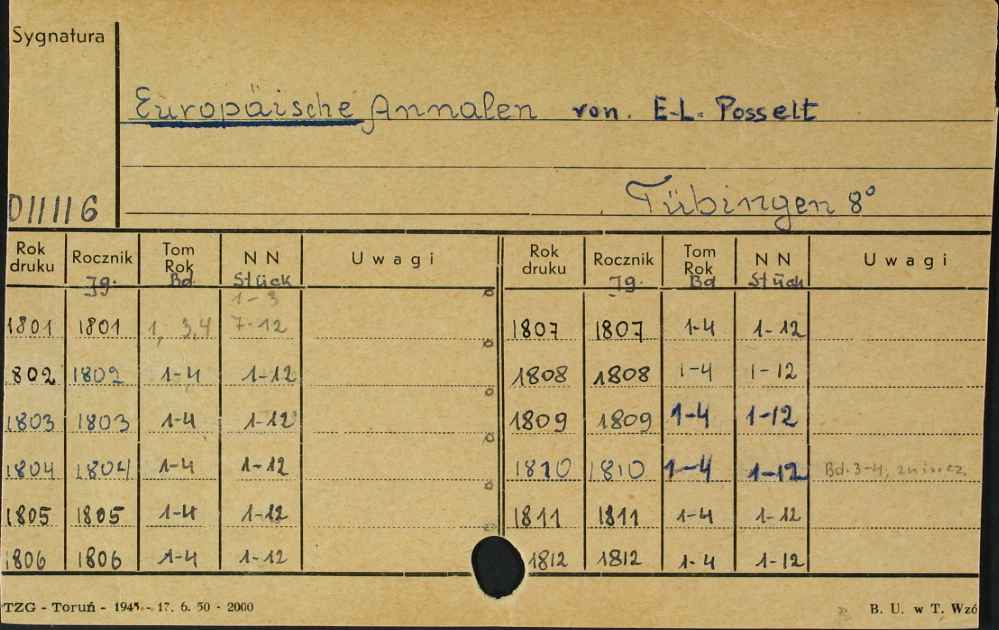 Sygnatura
Europäische Annalen von. E-L. Posselt
Tübingen 8°
011116
Rok druku Rocznik Tom Rok N N Uwagi Rok druku Rocznik Tom Rok N N Uwagi
Jg. Bd. Stück Jg. Bd Stück
1-3
1801 1801 1, 3,4 7-12 1807 1807 1-4 1-12
1802 1802 1-4 1-12 1808 1808 1-4 1-12
1803 1803 1-4 1-12 1809 1809 1-4 1-12
1804 1804 1-4 1-12 1810 1810 1-4 1-12 Bd. 3-4, zniszcz.
1805 1805 1-4 1-12 1811 1811 1-4 1-12
1806 1806 1-4 1-12 1812 1812 1-4 1-12
TZG - Toruń - 1945 - 17. 6. 50 - 2000 B. U. w T. Wzó